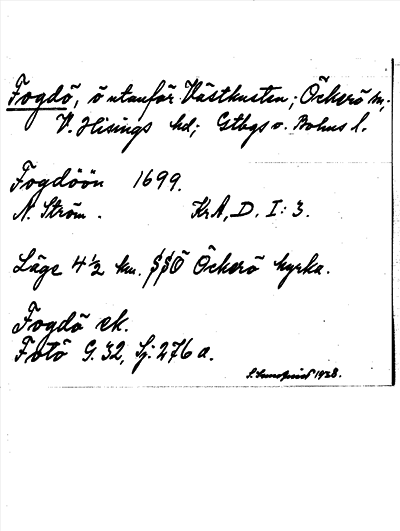 Fogdö, ö utanför Västkusten; Öckerö sn,
V. Hisings hd; Gtbgs o. Bohus l.
Fogdöön 1699.
N. Ström. KrA, D. I: 3.
Läge 4 1/2 km. SSÖ Öckerö kyrka.
Fogdö ek.
Fotö G. 32, Sj. 276 a.
1928.